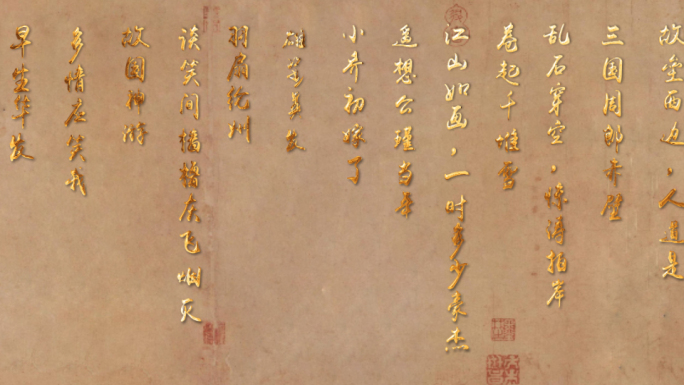 故垒西边，人道是
三国周郎赤壁
乱石穿空，惊涛拍岸
卷起千堆雪
江山如画，一时多少豪杰
遥想公瑾当年
小乔初嫁了
雄姿英发
羽扇纶巾
谈笑间樯橹灰飞烟灭
故国神游
多情应笑我
早生华发